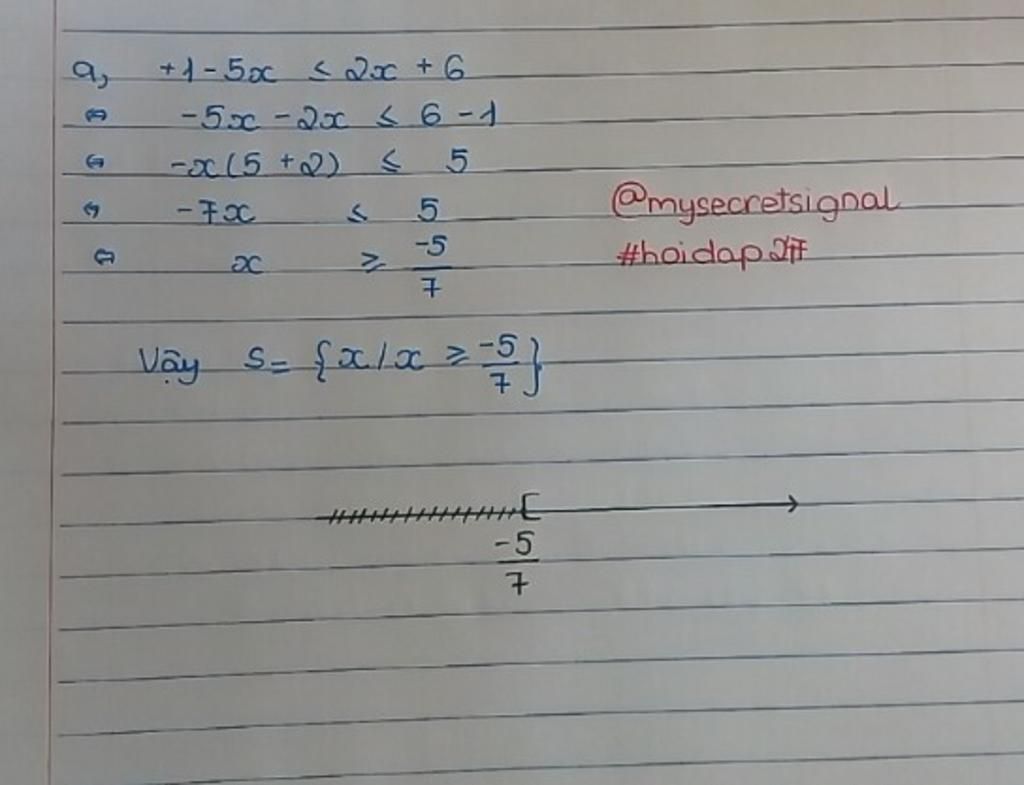 a, +1-5x ≤ 2x + 6
⇔ -5x - 2x ≤ 6 - 1
⇔ -x(5 + 2) ≤ 5
⇔ -7x ≤ 5
⇔ x ≥ -5/7
@mysecretsignal
#hoidap247
Vậy S = {x/x ≥ -5/7}
[
-5/7